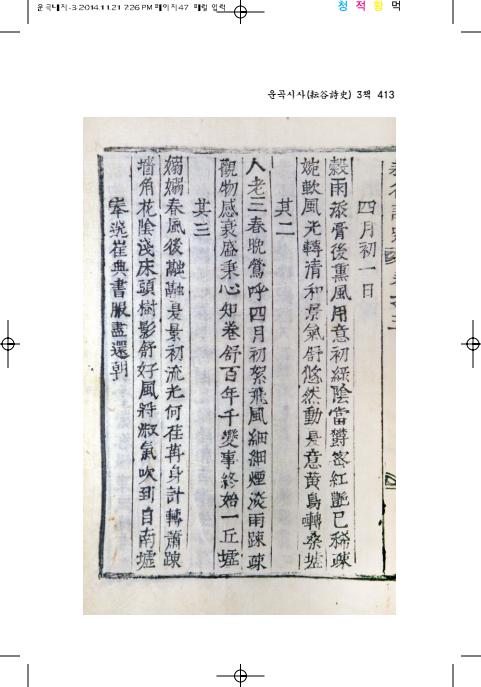 운곡대지-3 2014.11.21 7:26 PM 페이지47 매킬 입력
청 적 황 먹
운곡시사(耘谷詩史) 3책 413
四月初一日
穀雨添膏後熏風用意初綠陰當欝密紅艶已稀踈
婉軟風光轉清和景氣舒悠然動是意黄鳥囀桑墟
其二
人老三春晚鶯呼四月初絮飛風細細煙淡雨踈踈
觀物感衰盛乗心如卷舒百年千變事終始一丘墟
其三
嫋嫋春風後融融是景初流光何荏苒身計轉蕭踈
墻角花陰淺床頭樹影舒好風將淑氣吹到自南墟
奉送崔典書服盡還朝